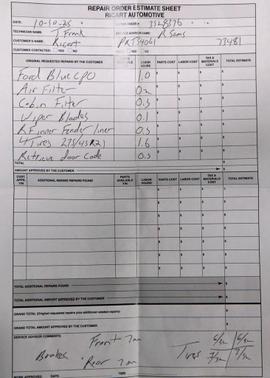 REPAIR ORDER ESTIMATE SHEET
RICART AUTOMOTIVE
DATE 10-30-25
TECHNICIAN NAME T Frank
CUSTOMER'S NAME Ricart
CUSTOMER CONTACTED YES NO
ORIGINAL REQUESTED REPAIRS BY THE CUSTOMER LABOR HOURS PARTS COST LABOR COST TAX & MATERIALS COST TOTAL ESTIMATE
Ford Blue CPO 1.0
Air Filter
Cabin Filter 0.3
Wiper Blades 0.1
R Finner Fender liner 0.5
4 Tires 275/45R21 1.6
Retrieve door Code 0.3
TOTAL
AMOUNT APPROVED BY THE CUSTOMER
ADDITIONAL REPAIRS FOUND PARTS AVAILABLE Y/N LABOR HOURS PARTS COST LABOR COST TAX & MATERIALS COST TOTAL ESTIMATE
TOTAL ADDITIONAL REPAIRS FOUND
TOTAL ADDITIONAL AMOUNT APPROVED BY THE CUSTOMER
GRAND TOTAL (Original requested repairs plus additional needed repairs)
GRAND TOTAL AMOUNT APPROVED BY THE CUSTOMER
SERVICE ADVISOR COMMENTS
Front 7mm
Brakes Rear 7mm Tires
WORK APPROVED DATE TIME